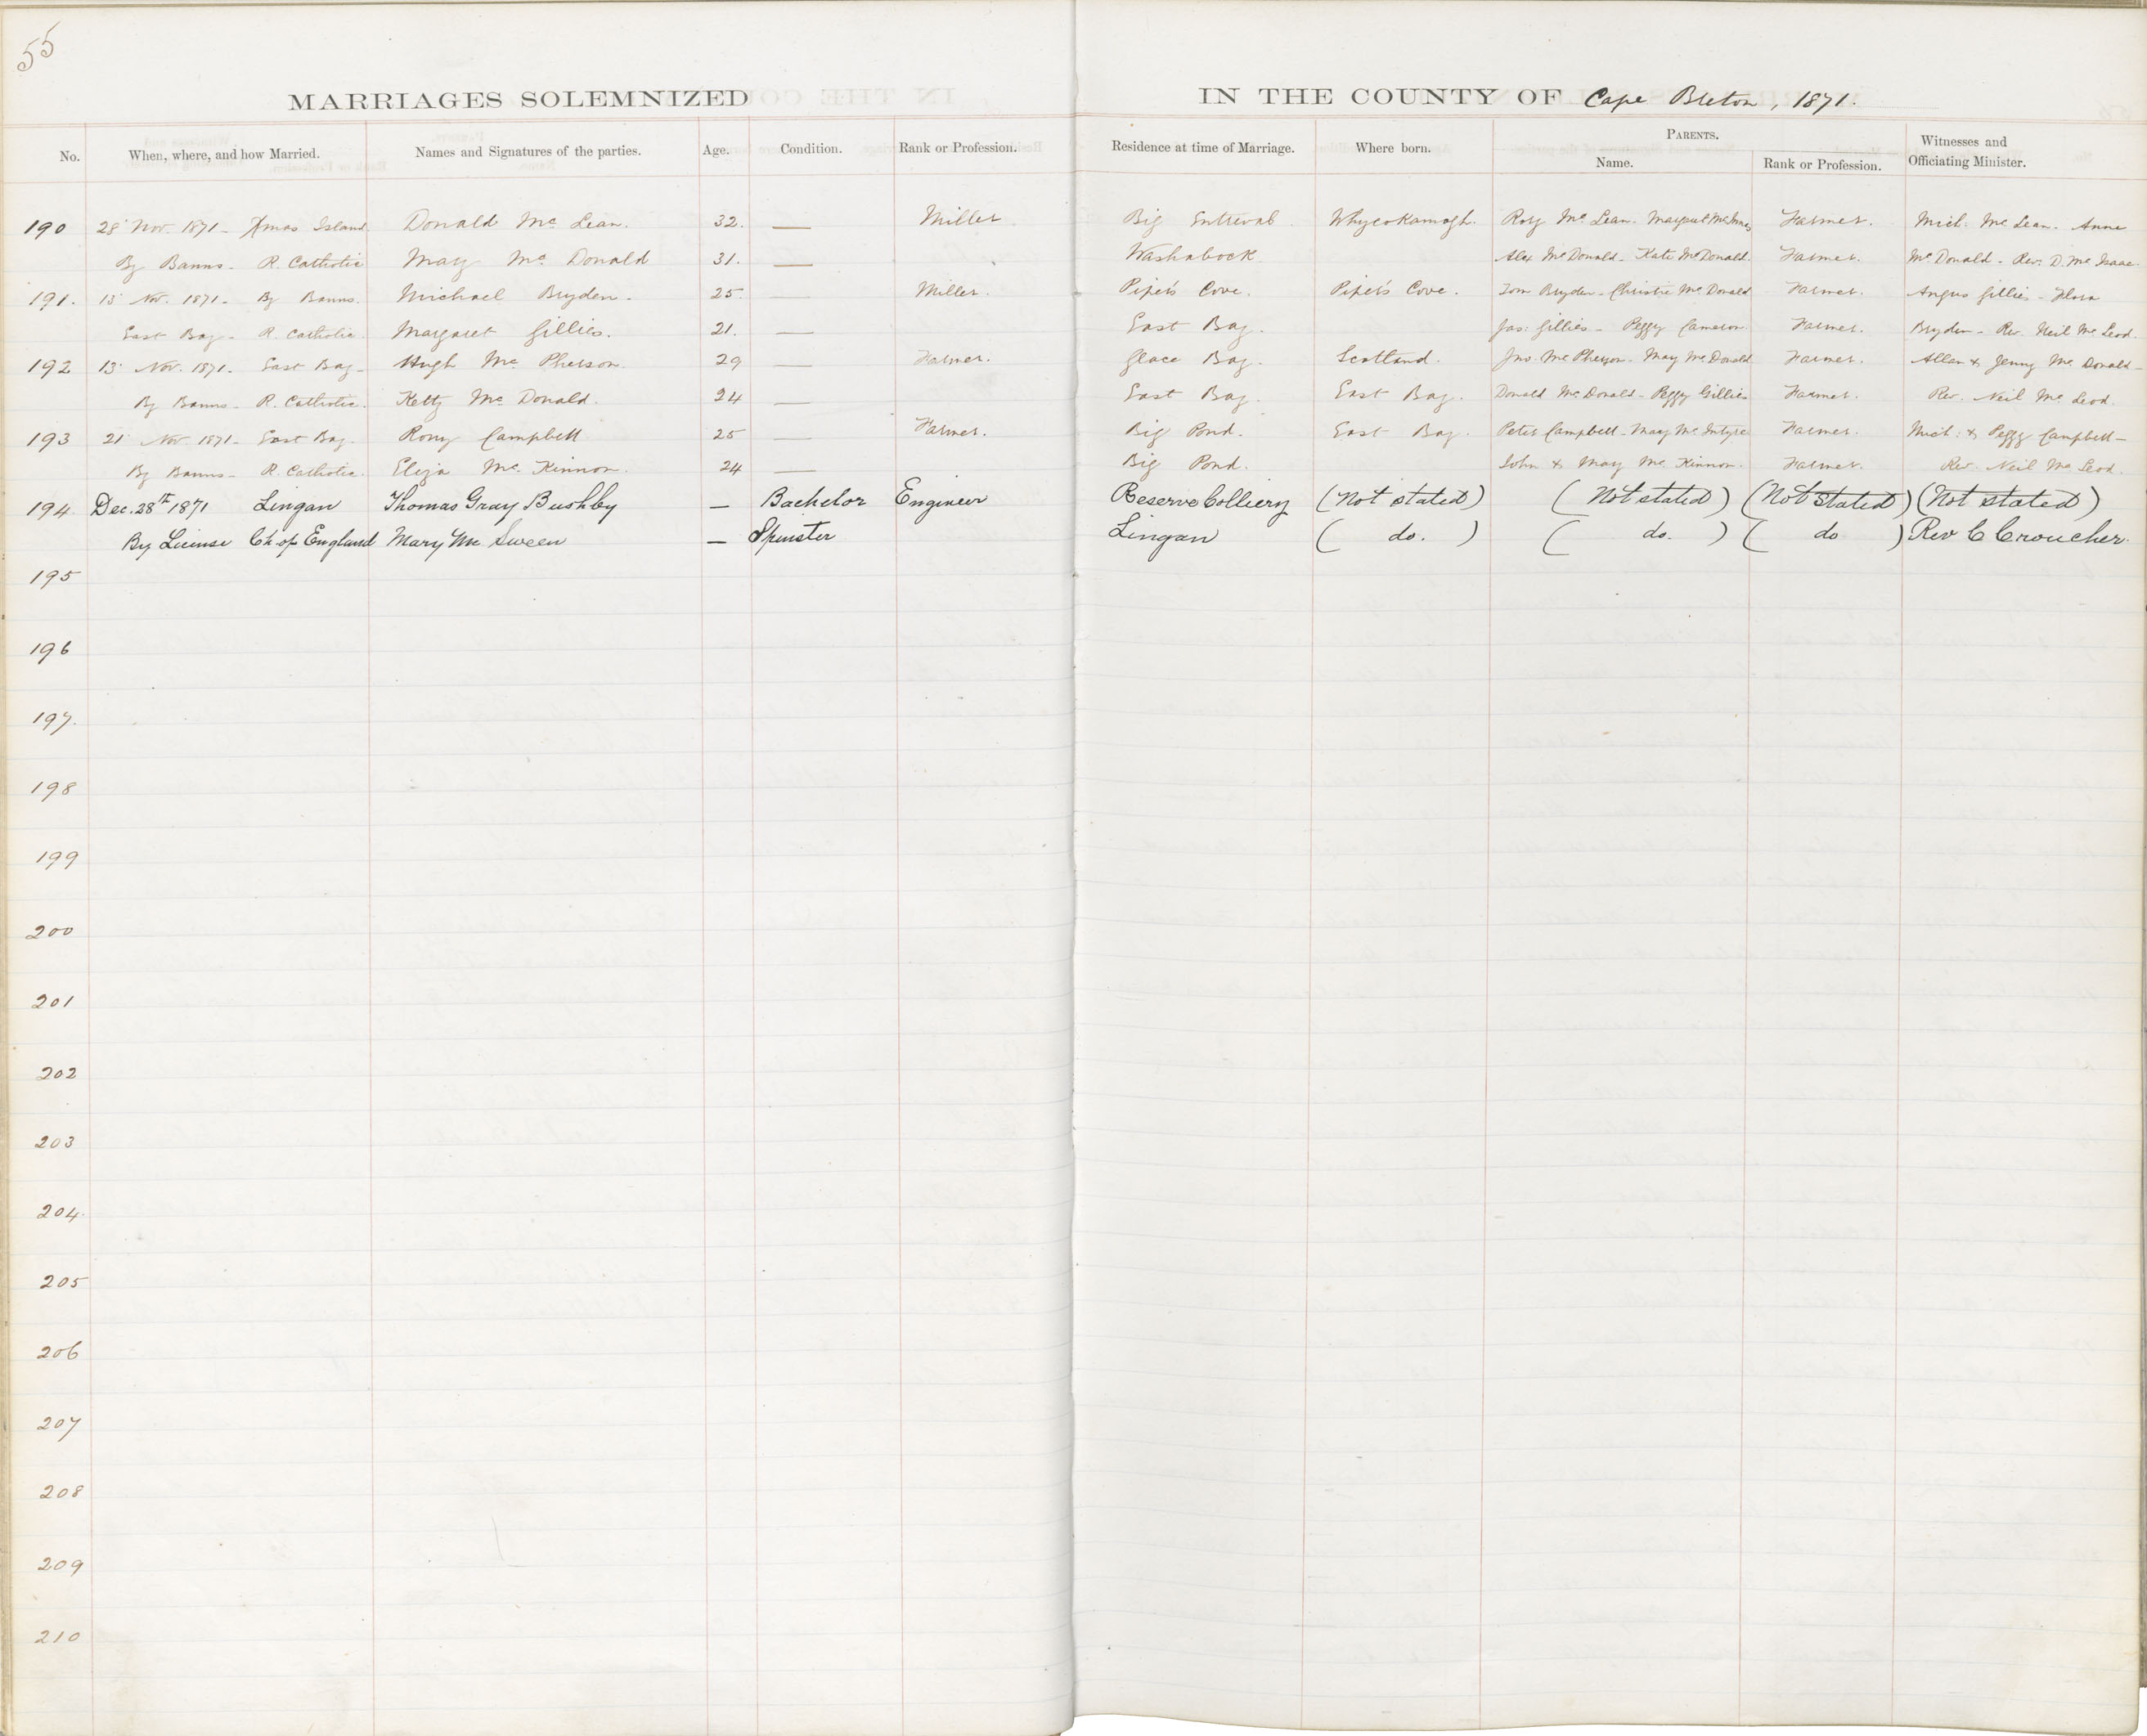 55
MARRIAGES SOLEMNIZED IN THE COUNTY OF Cape Breton, 1871.
No. When, where, and how Married. Names and Signatures of the parties. Age. Condition. Rank or Profession. Residence at time of Marriage. Where born. PARENTS. Name. Rank or Profession. Witnesses and Officiating Minister.
190 28 Nov. 1871 - Xmas Island Donald Mc Lean. 32. — Miller Big Interval Whycokamagh. Rory Mc Lean. Margaret McInnes Farmer. Mich. Mc Lean. Anne
By Banns - R. Catholic Mary Mc Donald 31. — Washabock Alex McDonald - Kate McDonald. Farmer. Mc Donald - Rev. D. Mc Isaac.
191. 13 Nov. 1871 - By Banns. Michael Bryden. 25. Miller. Piper's Cove. Piper's Cove. Tom Bryden - Christie Mc Donald Farmer. Angus Gillies - Flora
East Bay - R. Catholic Margaret Gillies. 21. — East Bay. Jas: Gillies - Peggy Cameron Farmer. Bryden - Rev. Neil Mc Leod.
192 13 Nov. 1871 - East Bay - Hugh Mc Pherson. 29 — Farmer. Glace Bay. Scotland. Jno. Mc Pherson - Mary McDonald Farmer. Allan & Jenny Mc Donald -
By Banns - R. Catholic. Ketty Mc Donald. 24 — East Bay. East Bay. Donald McDonald - Peggy Gillies Farmer. Rev. Neil Mc Leod.
193 21 Nov 1871 - East Bay Rory Campbell 25 — Farmer. Big Pond. East Bay. Peter Campbell - Mary Mc Intyre Farmer. Mich: & Peggy Campbell -
By Banns - R. Catholic. Eliza Mc Kinnon. 24 — Big Pond. John & Mary Mc Kinnon. Farmer. Rev. Neil Mc Leod.
194 Dec. 28th 1871 Lingan Thomas Gray Bushby — Bachelor Engineer Reserve Colliery (Not stated) (Not stated) (Not stated) (Not stated)
By License Ch of England Mary Mc Sween — Spinster Lingan ( do. ) ( do. ) ( do ) Rev C Croucher.
195
196
197.
198
199
200
201
202
203
204
205
206
207
208
209
210